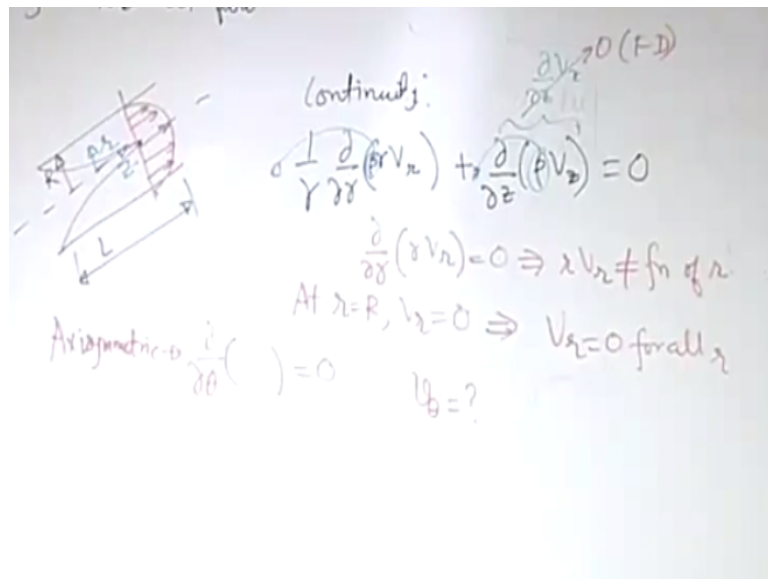 Continuity:
∂V_z/∂z → 0 (FD)
1/r ∂/∂r (ρ r V_r) + ∂/∂z (ρ V_z) = 0
∂/∂r (r V_r) = 0 ⇒ r V_r ≠ fn of r
At r=R, V_r=0 ⇒ V_r=0 for all r
Axisymmetric → ∂/∂θ ( ) = 0
V_θ = ?
R
r
z
L